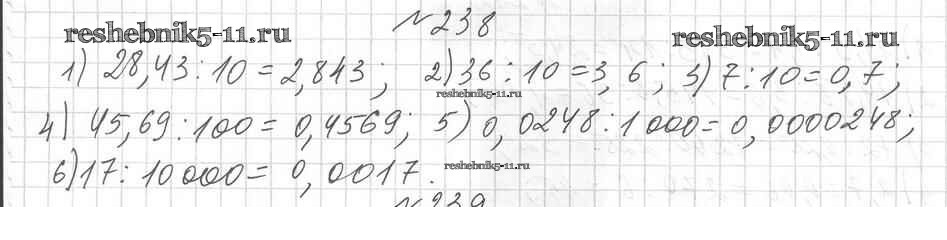 №238
reshebnik5-11.ru reshebnik5-11.ru
1) 28,43:10=2,843; 2) 36:10=3,6; 3) 7:10=0,7;
reshebnik5-11.ru
4) 45,69:100=0,4569; 5) 0,0248:1000=0,0000248;
6) 17:10000=0,0017.
reshebnik5-11.ru
№239